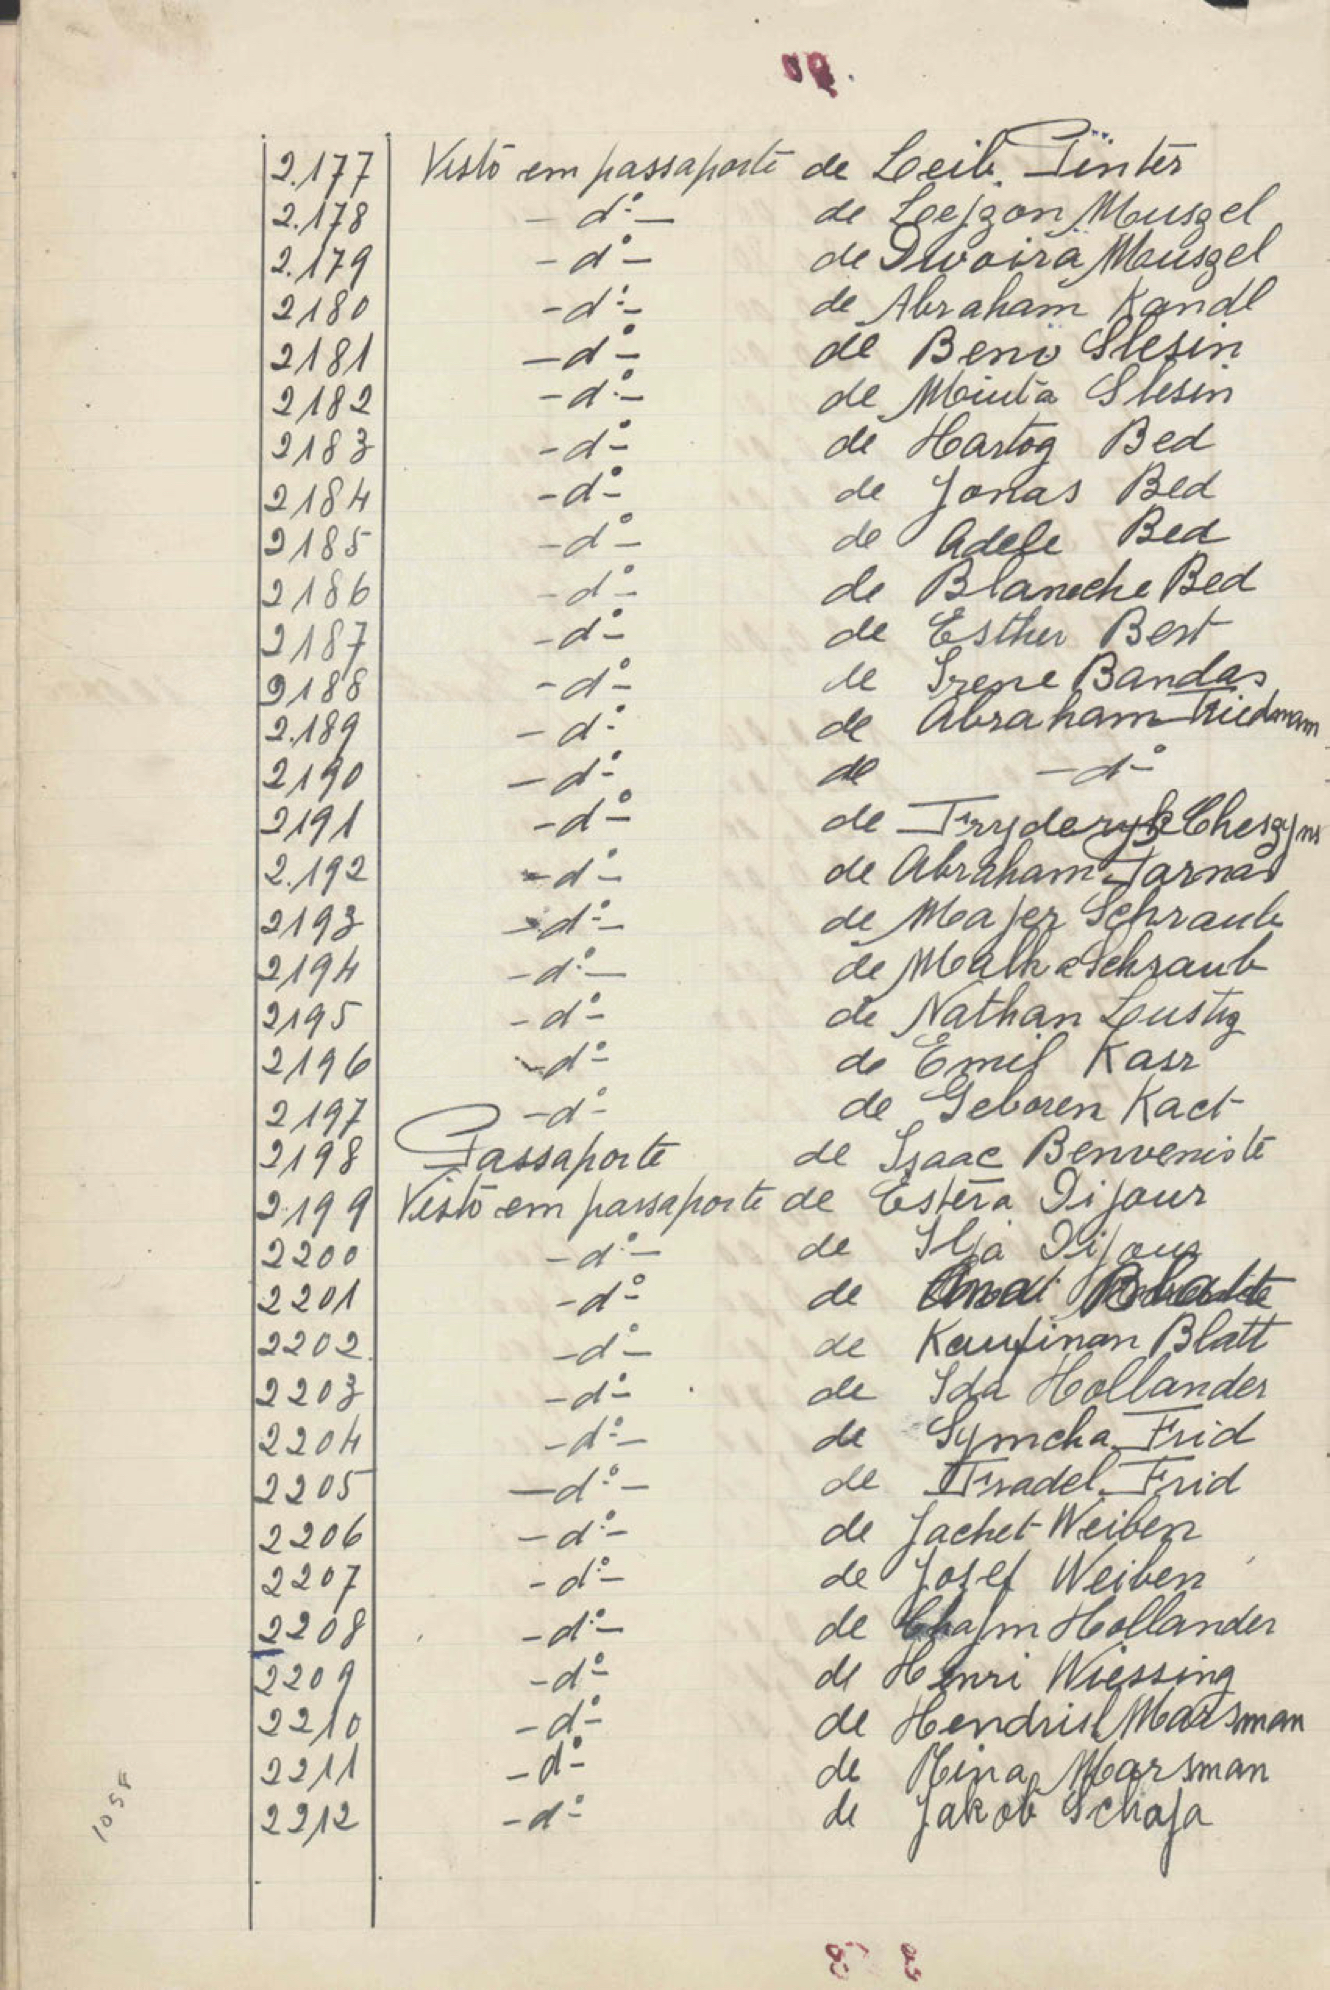 2.177 Visto em passaporte de Leib Pinter
2.178 -dº- de Lejzon Muszel
2.179 -dº- de Dwoira Muszel
2180 -dº- de Abraham Kandl
2181 -dº- de Beno Slesin
2182 -dº- de Minta Slesin
2183 -dº- de Hartog Bed
2184 -dº- de Jonas Bed
2185 -dº- de Adele Bed
2186 -dº- de Blanche Bed
2187 -dº- de Esther Best
2188 -dº- de Irene Bandas
2.189 -dº- de Abraham Friedmam
2190 -dº- de -dº-
2191 -dº- de Fryderyk
2.192 -dº- de Abraham Tarnas
2193 -dº- de Majer Schraub
2194 -dº- de Malka Schraub
2195 -dº- de Nathan Lustig
2196 -dº- de Emil Kasr
2197 -dº- de Geboren Kact
2198 Passaporte de Isaac Benveniste
2.199 Visto em passaporte de Estera Dijour
2200 -dº- de Ilja Dijour
2201 -dº- de
2202 -dº- de Kaufman Blatt
2203 -dº- de Ida Hollander
2204 -dº- de Symcha Frid
2205 -dº- de Fradel Frid
2206 -dº- de Jachet Weiben
2207 -dº- de Josef Weiben
2208 -dº- de Chajm Hollander
2209 -dº- de Henri Wiessing
2210 -dº- de Hendrik Marsman
2211 -dº- de Rina Marsman
2212 -dº- de Jakob Schaja